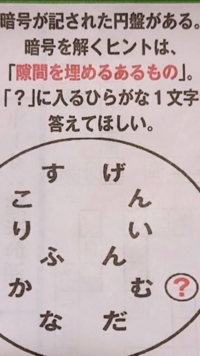 暗号が記された円盤がある。
暗号を解くヒントは、
「隙間を埋めるあるもの」。
「？」に入るひらがな１文字
答えてほしい。
す げ
こ ん
り い
ふ ん
か む ？
な だ